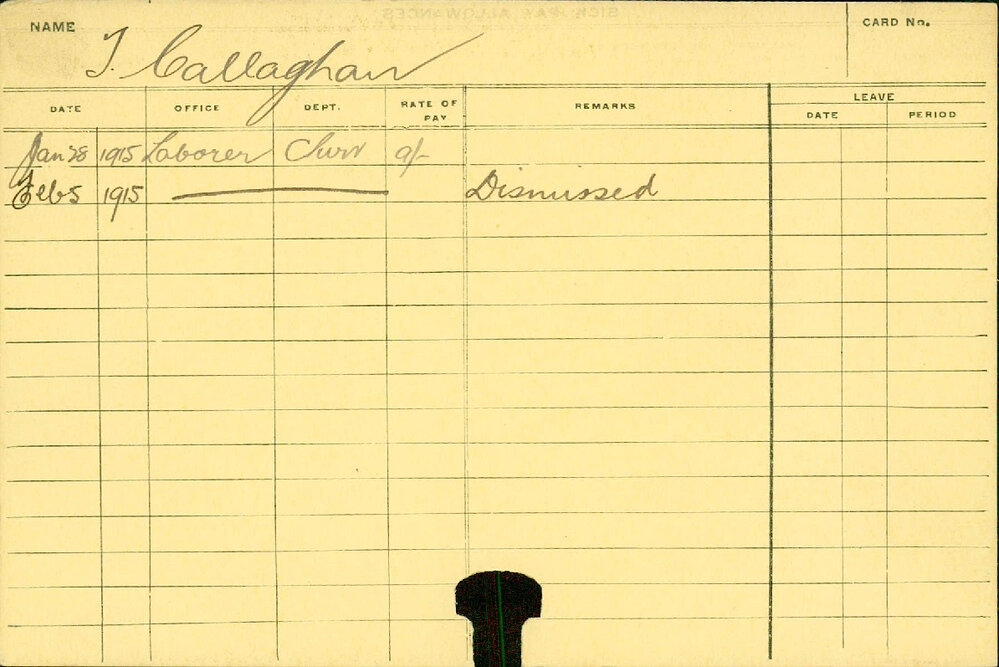 NAME T. Callaghan CARD No.
DATE OFFICE DEPT. RATE OF PAY REMARKS LEAVE
DATE PERIOD
Jan 28 1915 Laborer 9/-
Feb 5 1915 Dismissed